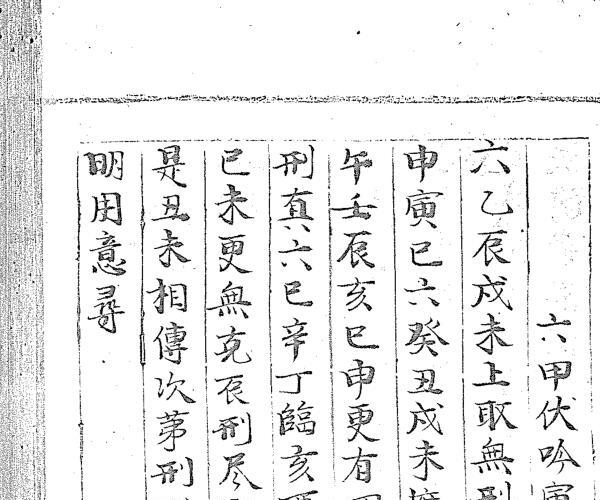 六甲伏吟寅
六乙辰戌未上取無刑
申寅巳六癸丑戌未
午壬辰亥巳申更有
刑真六巳辛丁臨亥
巳未更無克辰刑尽
是丑未相傳次第刑
明用意尋